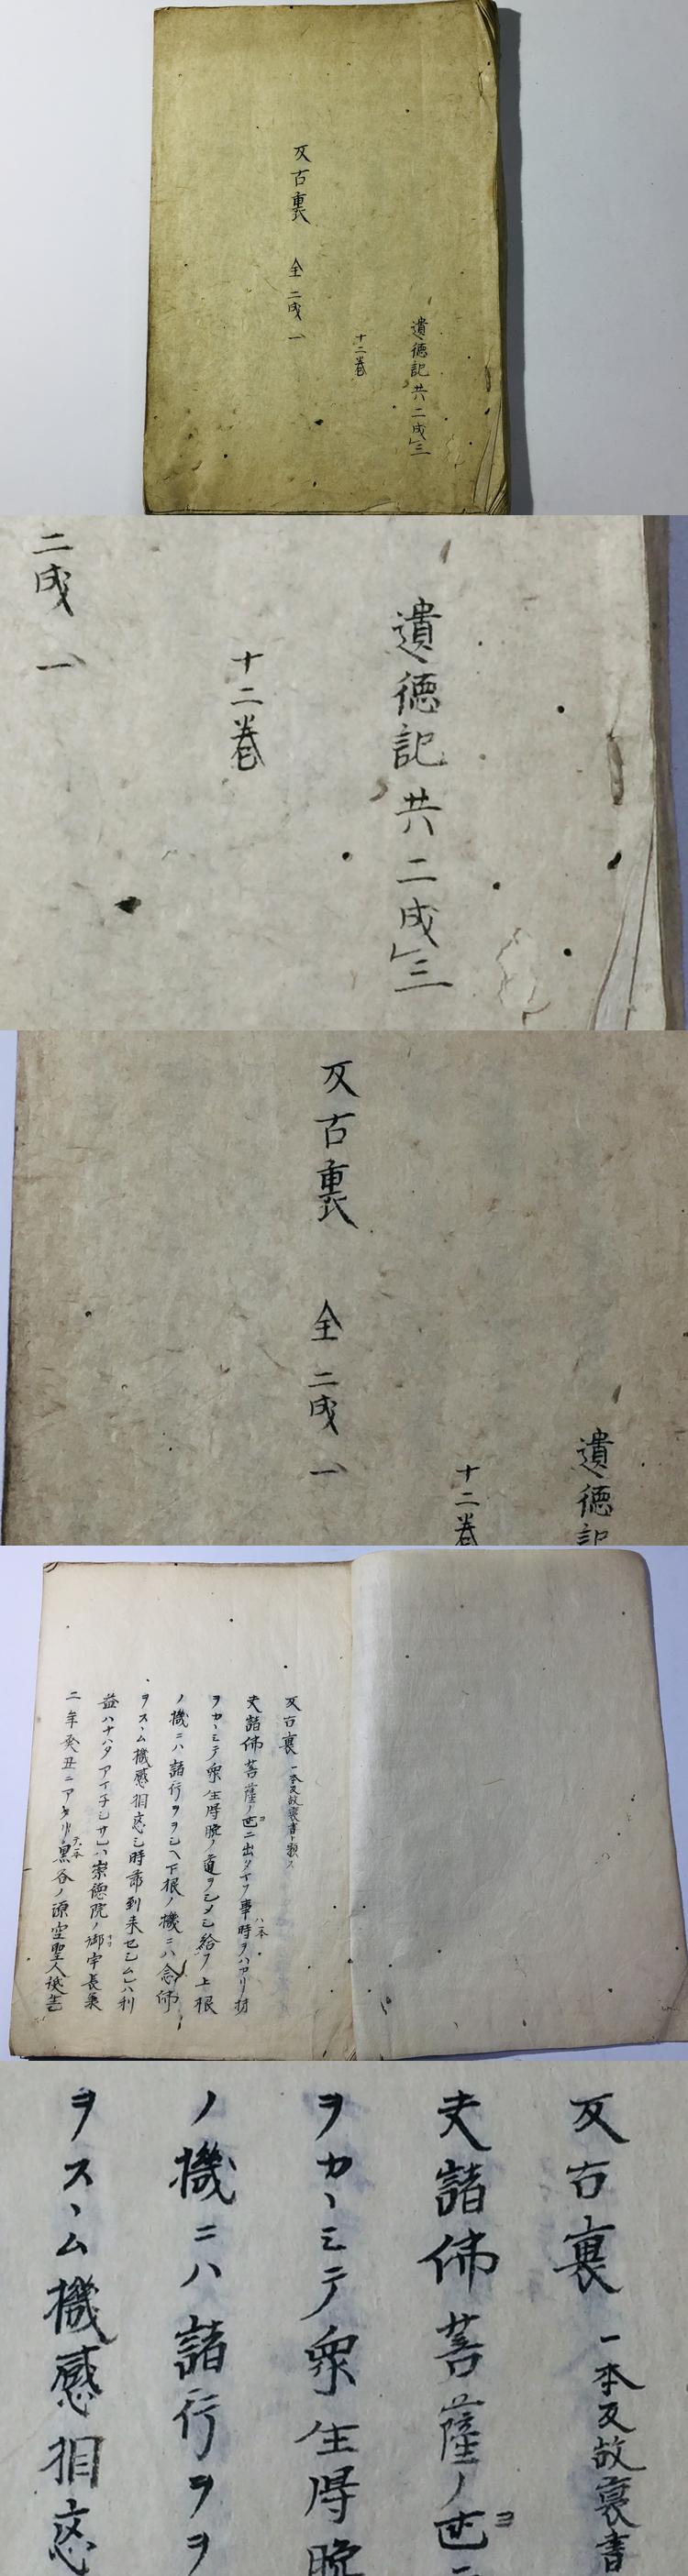 遺徳記共二成三
十二巻
反古裏 全 二成 一
遺徳記共二成三
十二巻
二成 一
遺徳記
十二巻
反古裏 全 二成 一
反古裏 一本反故裏書ト題ス
夫諸佛菩薩ノ世ニ出タマフ事時ヲハカリ機
ヲカヽミテ衆生得脱ノ道ヲシメシ給フ上根
ノ機ニハ諸行ヲヲシヘ下根ノ機ニハ念佛
ヲスヽム機感相應シ時節到来セシムレハ利
益ハナハタアイチシサレハ崇徳院ノ御宇長承
二年癸丑ニアタリ黒谷ノ源空聖人誕生
反古裏 一本反故裏書
夫諸佛菩薩ノ世ニ
ヲカヽミテ衆生得脱
ノ機ニハ諸行ヲヲ
ヲスヽム機感相應